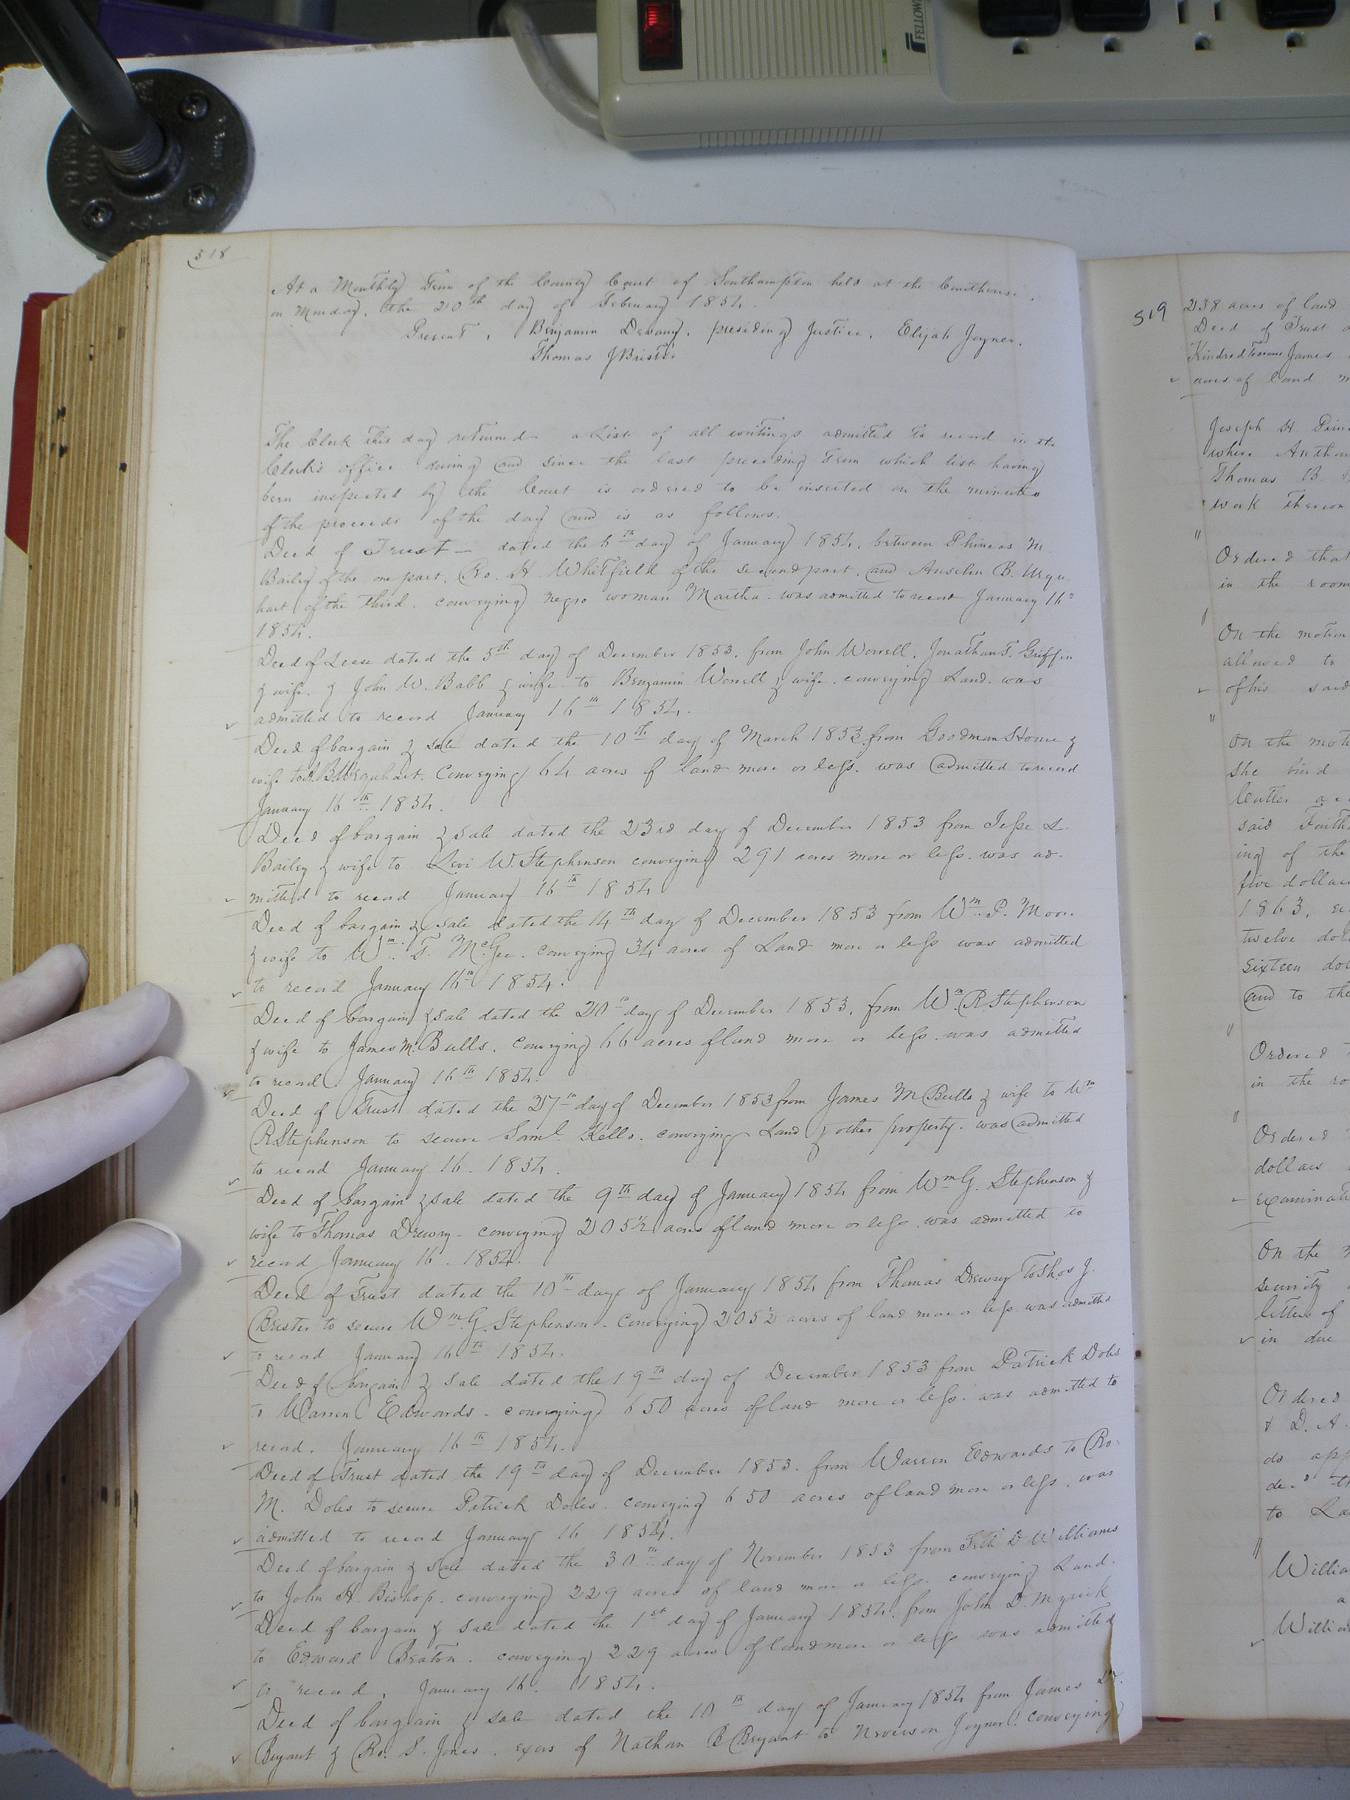 518
At a Monthly Term of the County Court of Southampton held at the Courthouse,
on Monday, the 20th day of February 1854.
Present, Benjamin Devany, presiding Justice, Elijah Joyner,
Thomas J Brister
The Clerk this day returned a List of all writings admitted to record in the
Clerk's office during and since the last preceding Term which list having
been inspected by the Court is ordered to be inserted on the minutes
of the proceeds of the day and is as follows.
Deed of Trust — dated the 6th day of January 1854, between Phineas M.
Bailey of the one part, Ro. H. Whitfield of the second part, and Anselm B. Urqu
hart of the third. conveying negro woman Martha. was admitted to record January 16th
1854.
Deed of Lease dated the 5th day of December 1853, from John Worrell, Jonathan T. Griffin
& wife, & John W. Babb & wife to Benjamin Worrell & wife. conveying Land. was
admitted to record January 16th 1854.
Deed of bargain & sale dated the 10th day of March 1853 from Goodman House &
wife to Urquhart. Conveying 64 acres of land more or less. was admitted to record
January 16th 1854.
Deed of bargain & sale dated the 23rd day of December 1853 from Jesse L.
Bailey & wife to Levi W. Stephenson conveying 291 acres more or less. was ad-
mitted to record January 16th 1854
Deed of bargain & sale dated the 14th day of December 1853 from Wm. P. Moore
& wife to Wm. T. McGee. conveying 34 acres of Land more or less was admitted
to record January 16th 1854.
Deed of bargain & sale dated the 20th day of December 1853, from Wm R Stephenson
& wife to James M. Butts. conveying 66 acres of land more or less. was admitted
to record January 16th 1854.
Deed of Trust dated the 27th day of December 1853 from James M Butts & wife to Wm
R Stephenson to secure Saml. Kello. conveying Land & other property. was admitted
to record January 16. 1854.
Deed of bargain & sale dated the 9th day of January 1854 from Wm G. Stephenson &
wife to Thomas Drewry. conveying 205½ acres of land more or less was admitted to
record January 16. 1854.
Deed of Trust dated the 10th day of January 1854 from Thomas Drewry to Thos J.
Brister to secure Wm G. Stephenson. conveying 205½ acres of land more or less was admitted
to record January 16th 1854.
Deed of bargain & sale dated the 19th day of December 1853 from Patrick Doles
to Warren Edwards. conveying 650 acres of land more or less. was admitted to
record. January 16th 1854.
Deed of Trust dated the 19th day of December 1853. from Warren Edwards to Ro.
M. Doles to secure Patrick Doles. conveying 650 acres of land more or less. was
admitted to record January 16 1854.
Deed of bargain & sale dated the 30th day of November 1853 from D Williams
to John H. Bishop. conveying 229 acres of land more or less. conveying Land.
Deed of bargain & sale dated the 1st day of January 1854. from John D. Myrick
to Edward Beaton. conveying 229 acres of land more or less was admitted
to record, January 16. 1854.
Deed of bargain & sale dated the 10th day of January 1854 from James
Bryant & Ro. S. Jones. exors of Nathan B Bryant to Neverson Joyner. conveying
519
238 acres of land
Deed of Trust
Kindred James
acres of land
Joseph H.
where
Thomas B.
work thereon
Ordered that
in the room
On the motion
allowed to
of his said
On the
she bind
said
ing of the
five dollars
1863,
twelve
sixteen
and to the
Ordered
in the
Ordered
dollars
On the
security
letters of
in due
Ordered
& D. A.
to
FELLOWES